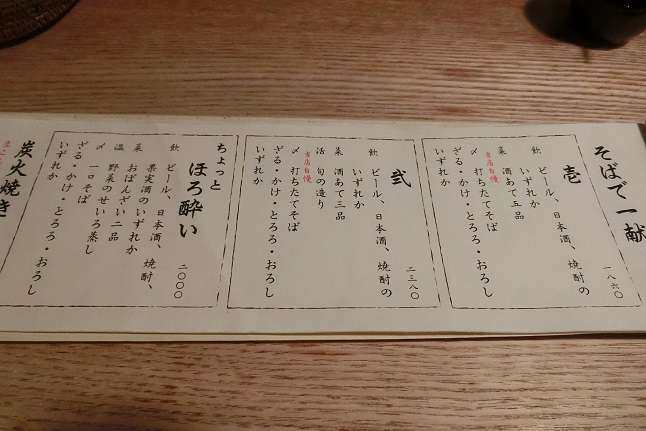 そばで一献
壱
一八六〇
飲 ビール、日本酒、焼酎の
いずれか
菜 酒あて五品
当店自慢
〆 打ちたてそば
ざる・かけ・とろろ・おろし
いずれか
弐
二三八〇
飲 ビール、日本酒、焼酎の
いずれか
菜 酒あて三品
活 旬の造り
当店自慢
〆 打ちたてそば
ざる・かけ・とろろ・おろし
いずれか
ちょっと
ほろ酔い
二〇〇〇
飲 ビール、日本酒、焼酎、
果実酒のいずれか
菜 おばんざい二品
温 野菜のせいろ蒸し
〆 一口そば
ざる・かけ・とろろ・おろし
いずれか
炭火焼き